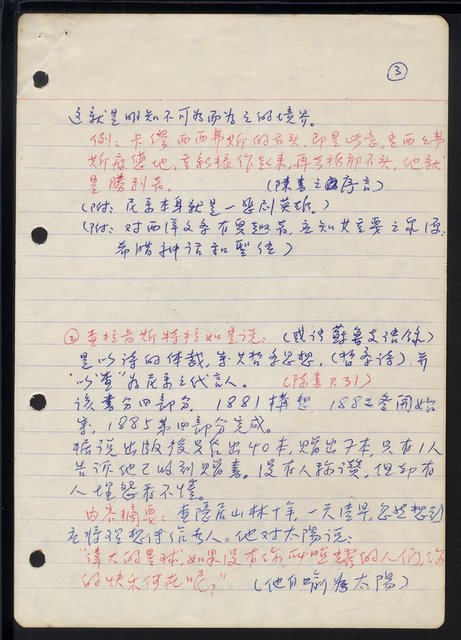 ③
这就是明知不可為而為之的境界。
例：卡缪 西西弗斯的石头，即是此意，当西之弗
斯疲憊地，重新振作起来，再去推那石头，他就
是勝利者。(陳書之序言)
(附：尼采本身就是一悲剧英雄。)
(附：对西洋文学有兴趣者，应知其主要之來源：
希腊神话和聖经)
②查拉苦斯特拉如是说：(或译蘇鲁支语錄)
是以诗的体裁，来写哲学思想，(哲学诗)，并
以"查"为尼采之代言人。(陈書P.31)
该書分四部分，1881構想，1882冬開始
写，1885第四部分完成。
据说出版後只售出40本，赠出7本，只有1人
告訴他已收到赠書。没有人称讚，但却有
人埋怨看不懂。
内容摘要：查隱居山林十年，一天清早，忽然想到
应将理想傳給世人。他对太陽说：
"偉大的星球，如果没有你所照耀的人们，你
的快乐何在呢？"(他自喻為太陽)